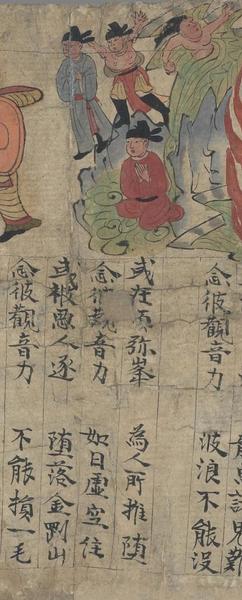 諸鬼難
念彼觀音力 波浪不能没
或在湏弥峯 為人所推堕
念彼觀音力 如日虚空住
或被惡人逐 堕落金剛山
念彼觀音力 不能損一毛